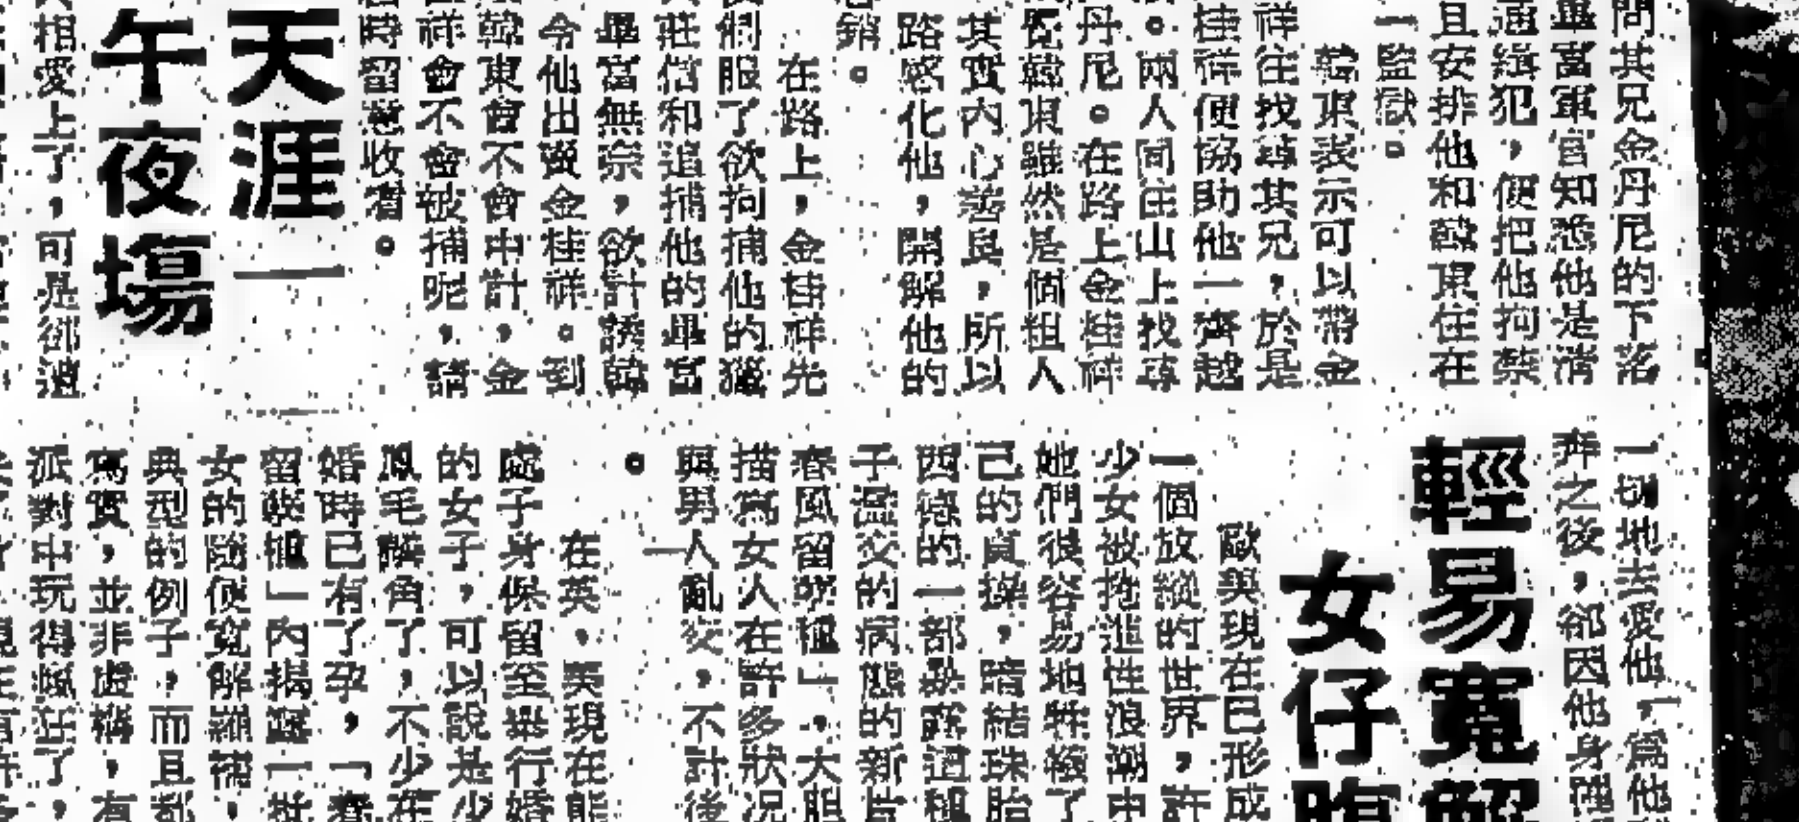 問其兄金丹尼的下落
畢富軍官知悉他是清
通緝犯，便把他拘禁
且安排他和韓東住在
一監獄。
韓東表示可以帶金
祥往找尋其兄，於是
桂祥便協助他一齊越
。兩人同往山上找尋
丹尼。在路上金桂祥
覺韓東雖然是個粗人
其實內心善良，所以
路感化他，開解他的
銷。
在路上，金桂祥先
服了欲拘捕他的獵
莊信和追捕他的畢富
畢富無奈，欲計誘韓
令他出賣金桂祥。到
韓東會不會中計，金
祥會不會被捕呢，請
時留意收看。
天涯一
午夜場
相愛上了，可是卻遭
一切地去愛他，為他
奔之後，卻因他身
輕易寬解
女仔腹
歐美現在已形成
一個放縱的世界，許
少女被捲進性浪潮中
她們很容易地犧牲了
己的貞操，暗結珠胎
西德的一部暴露這種
子濫交的病態的新片
春風留孽種」，大胆
描寫女人在許多狀況
與男人亂交，不計後
。
在英，美現在能
處子身保留至舉行婚
的女子，可以說是少
鳳毛麟角了，不少在
婚時已有了孕，「春
留孽種」內揭露一批
女的隨便寬解羅襦，
典型的例子，而且都
寫實，並非虛構，有
派對中玩得瘋狂了，